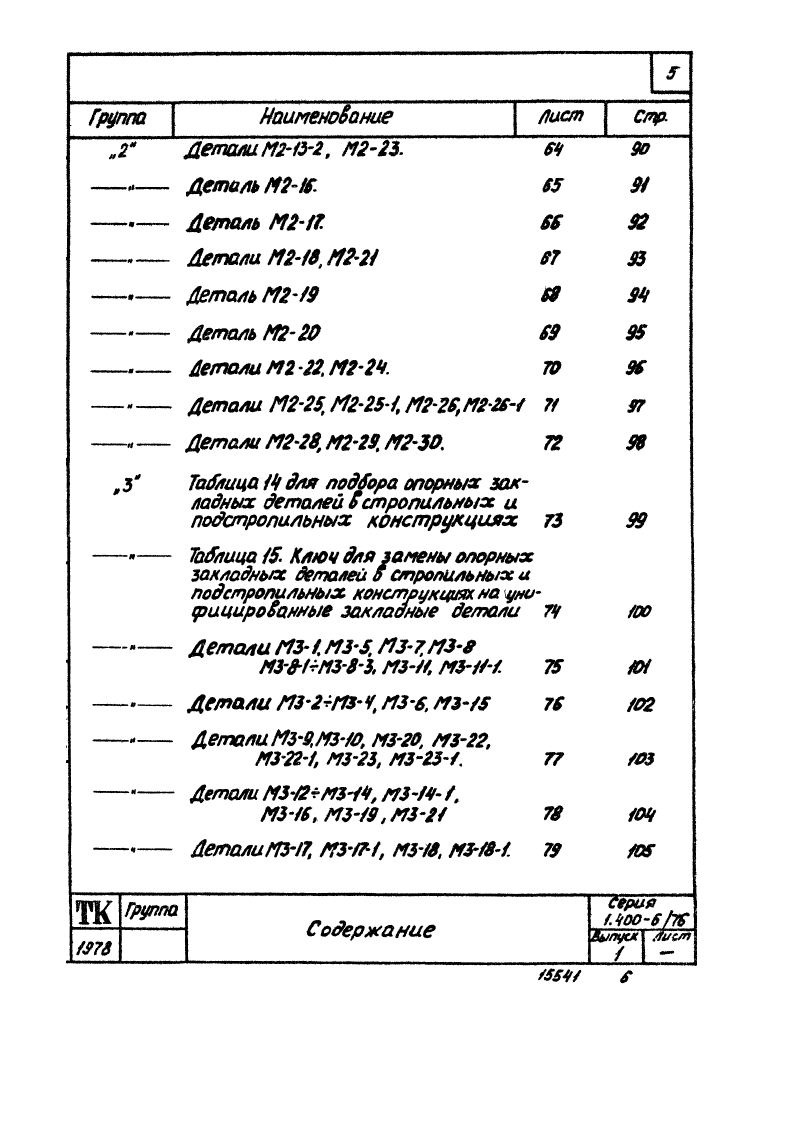 5
Группа Наименование Лист Стр.
„2“ Детали М2-13-2, М2-23. 64 90
—"— Деталь М2-16. 65 91
—"— Деталь М2-17. 66 92
—"— Детали М2-18, М2-21 67 93
—"— Деталь М2-19 68 94
—"— Деталь М2-20 69 95
—"— Детали М2-22, М2-24. 70 96
—"— Детали М2-25, М2-25-1, М2-26, М2-26-1 71 97
—"— Детали М2-28, М2-29, М2-30. 72 98
„3“ Таблица 14 для подбора опорных зак-
ладных деталей в стропильных и
подстропильных конструкциях 73 99
—"— Таблица 15. Ключ для замены опорных
закладных деталей в стропильных и
подстропильных конструкциях на уни-
фицированные закладные детали 74 100
—"— Детали М3-1, М3-5, М3-7, М3-8
М3-8-1÷М3-8-3, М3-11, М3-11-1. 75 101
—"— Детали М3-2÷М3-4, М3-6, М3-15 76 102
—"— Детали М3-9, М3-10, М3-20, М3-22,
М3-22-1, М3-23, М3-23-1. 77 103
—"— Детали М3-12÷М3-14, М3-14-1,
М3-16, М3-19, М3-21 78 104
—"— Детали М3-17, М3-17-1, М3-18, М3-18-1. 79 105
ТК Группа
1978
Содержание
Серия
1.400-6/76
Выпуск Лист
1 —
15541 6